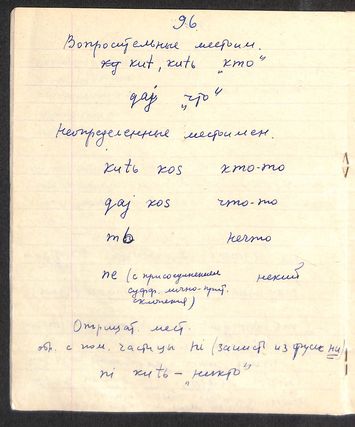 96
Вопросительные местоим.
kut, kutь „кто"
дај „что"
Неопределенные местоимен.
kutь kos кто-то
дај kos что-то
нечто
ne (с присоединением некий
суфф. лично-прит.
склонения)
Отрицат. мест.
обр. с пом. частицы ni (заимст. из русск ни)
ni kutь – „никто"